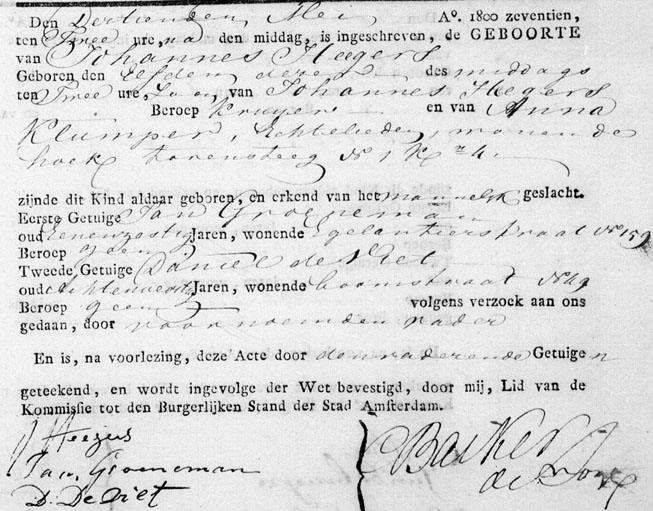 Den Dertienden Mei A°. 1800 zeventien,
ten Twee ure, na den middag, is ingeschreven, de GEBOORTE
van Johannes Heegers
Geboren den elfden dezer des middags
ten Twee ure, Zoon van Johannes Heegers
Beroep kruyer en van Anna
Klumper, Echtelieden, wonende
hoek torensteeg N° 1 K
zijnde dit Kind aldaar geboren, en erkend van het mannelyk geslacht.
Eerste Getuige Jan Groeneman
oud Eenenzestig Jaren, wonende Egelantierstraat N° 159
Beroep geen
Tweede Getuige Daniel de Viet
oud Achtenveertig Jaren, wonende boomstraat N° 49
Beroep geen volgens verzoek aan ons
gedaan, door voornoemden vader
En is, na voorlezing, deze Acte door den vader en de Getuigen
geteekend, en wordt ingevolge der Wet bevestigd, door mij, Lid van de
Kommissie tot den Burgerlijken Stand der Stad Amsterdam.
J Heegers
Jan Groeneman
D. De Viet
Bakker